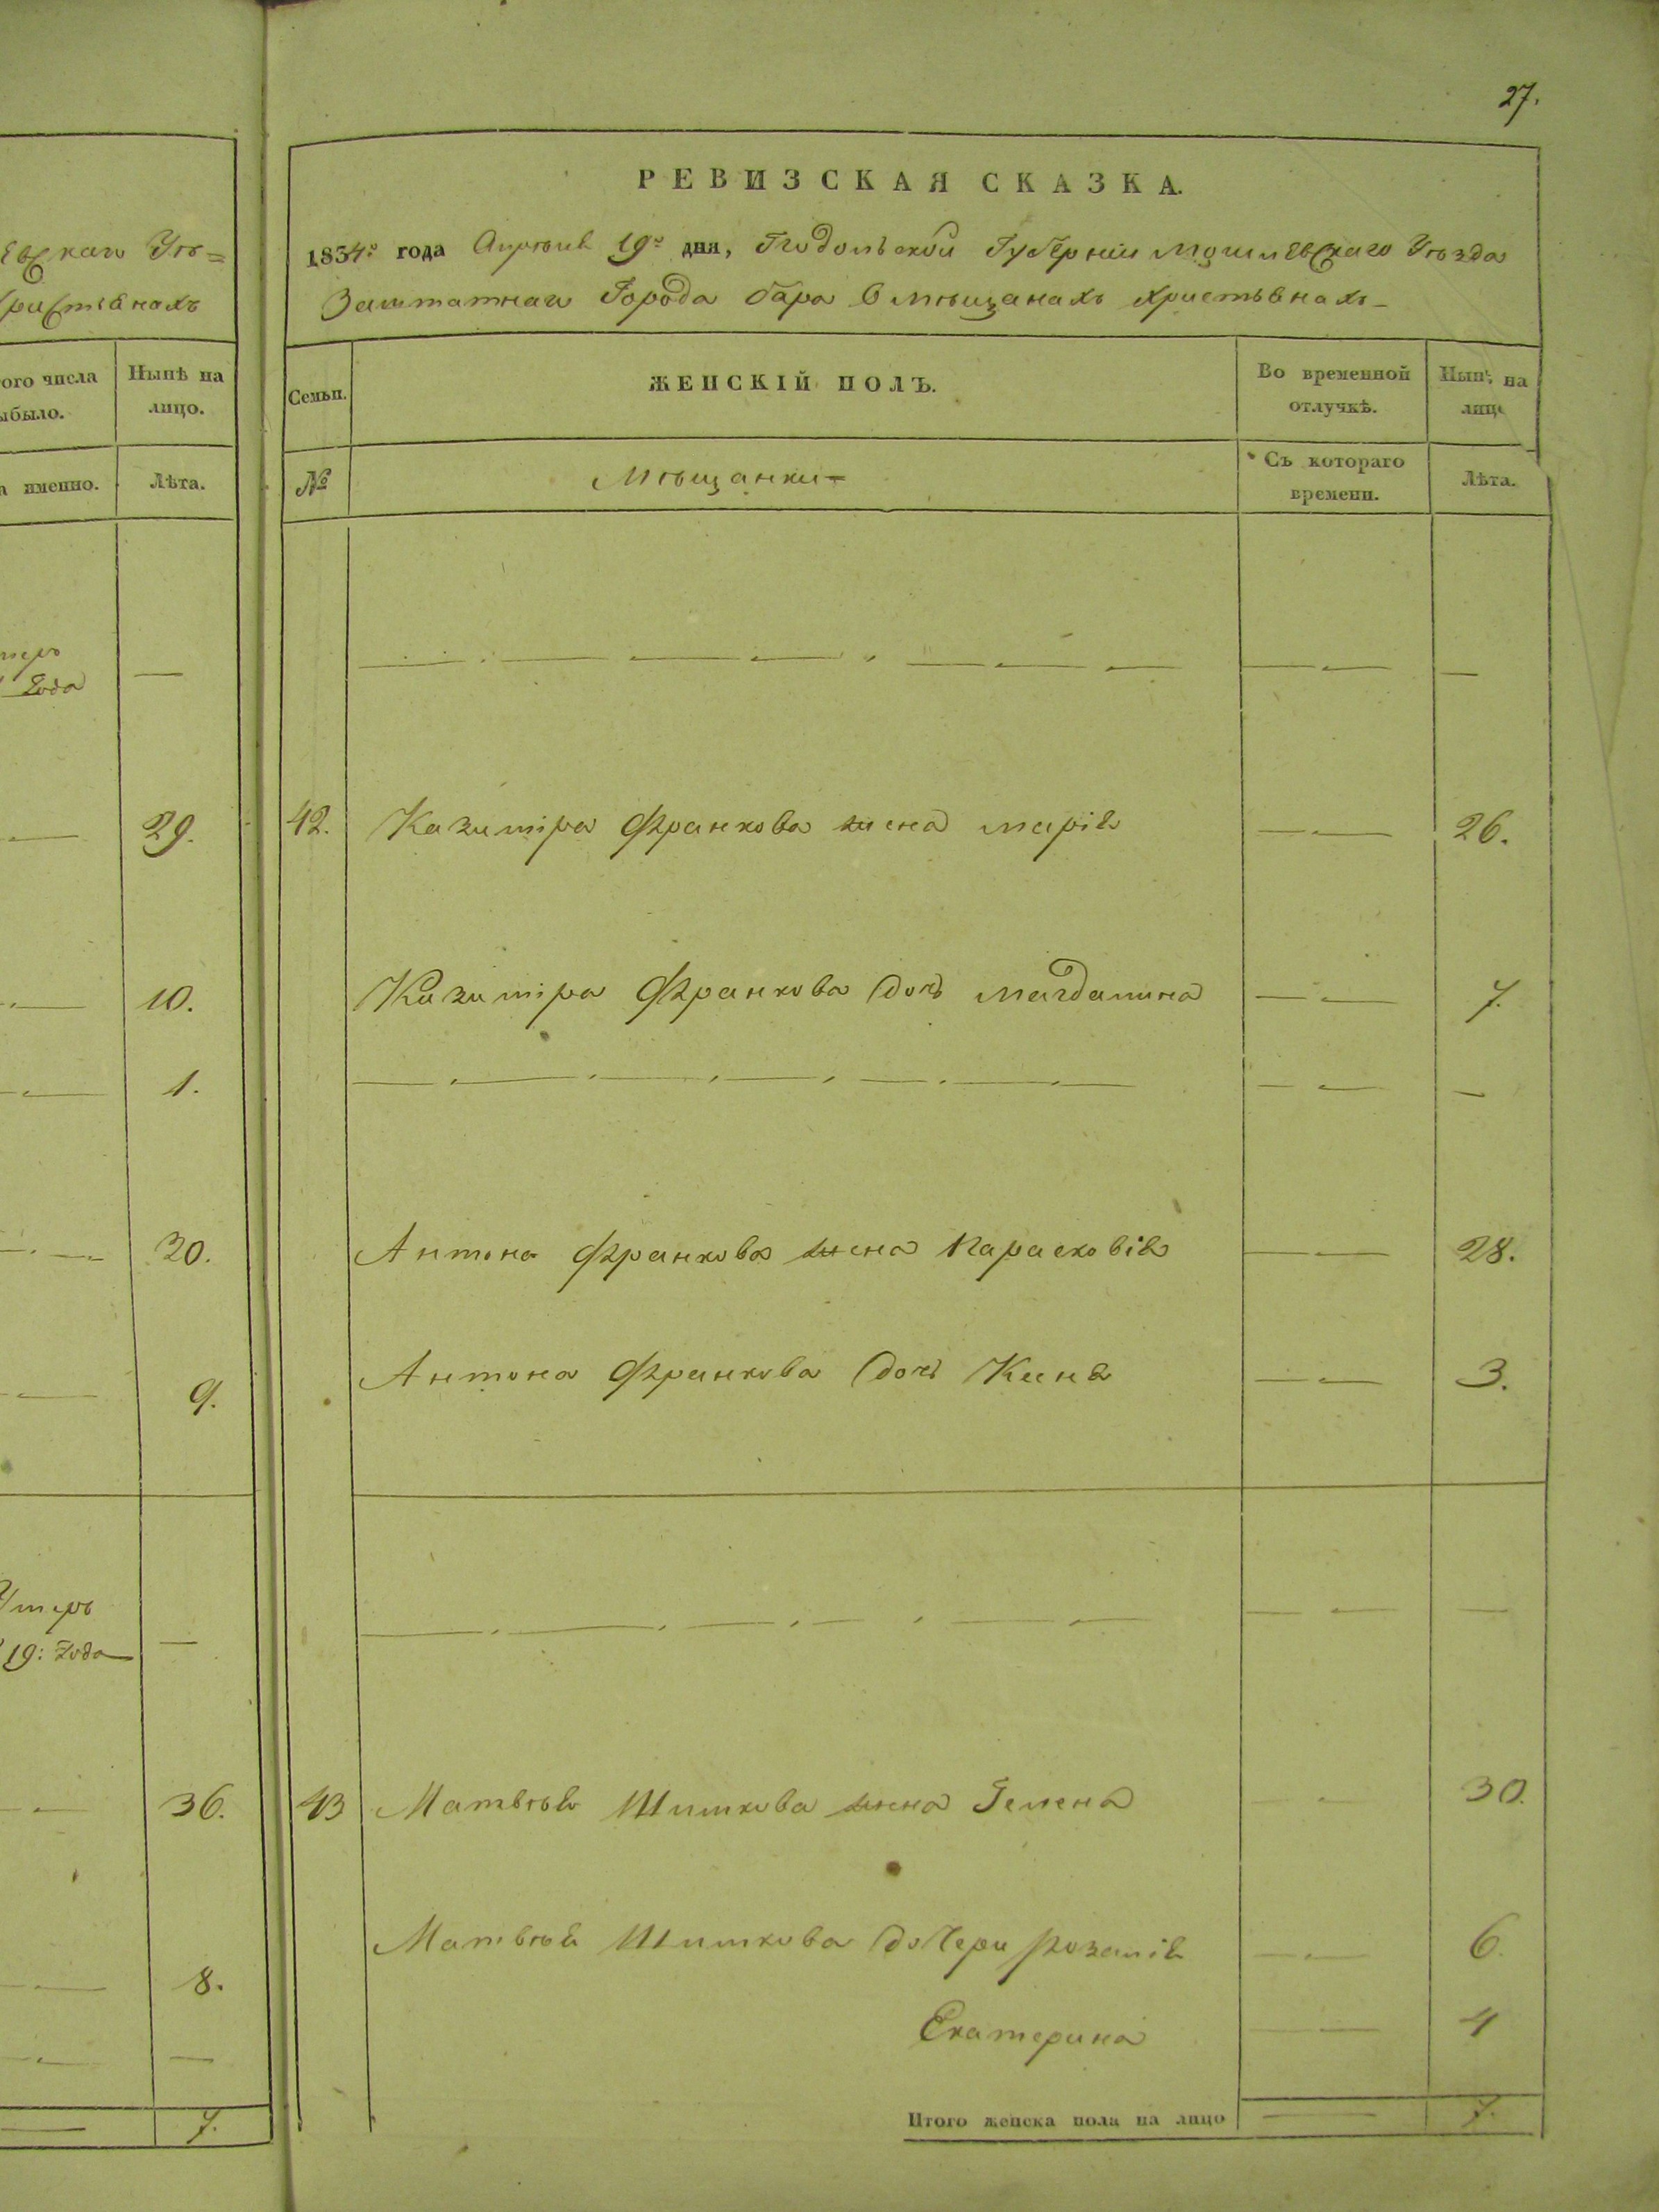 евскаго Уѣ=
христіянахъ
того числа
выбыло.
Нынѣ на
лицо.
именно.
Лѣта.
умеръ
года —
29.
10.
1.
30.
9.
Умеръ
19: года —
36.
8.
7.
27.
РЕВИЗСКАЯ СКАЗКА.
1834:º года Апрѣля 19º дня, Подольской Губерніи Могилевскаго Уѣзда
Заштатнаго Города Бара О мѣщанахъ христьянахъ
Семьи.
ЖЕНСКІЙ ПОЛЪ.
Во временной
отлучкѣ.
Нынѣ на
лицо
№
Мѣщанки
Съ котораго
времени.
Лѣта.
42. Казимѣра Франкова жена марія — 26.
Казимѣра Франкова дочь магдалина — 7.
Антона Франкова жена Парасковія — 28.
Антона Франкова дочь — 3.
43 Матвѣя Шишкова жена Гелена — 30.
Матвѣя Шишкова дочери Розалія — 6.
Екатерина — 4
Итого женска пола на лицо — 7.